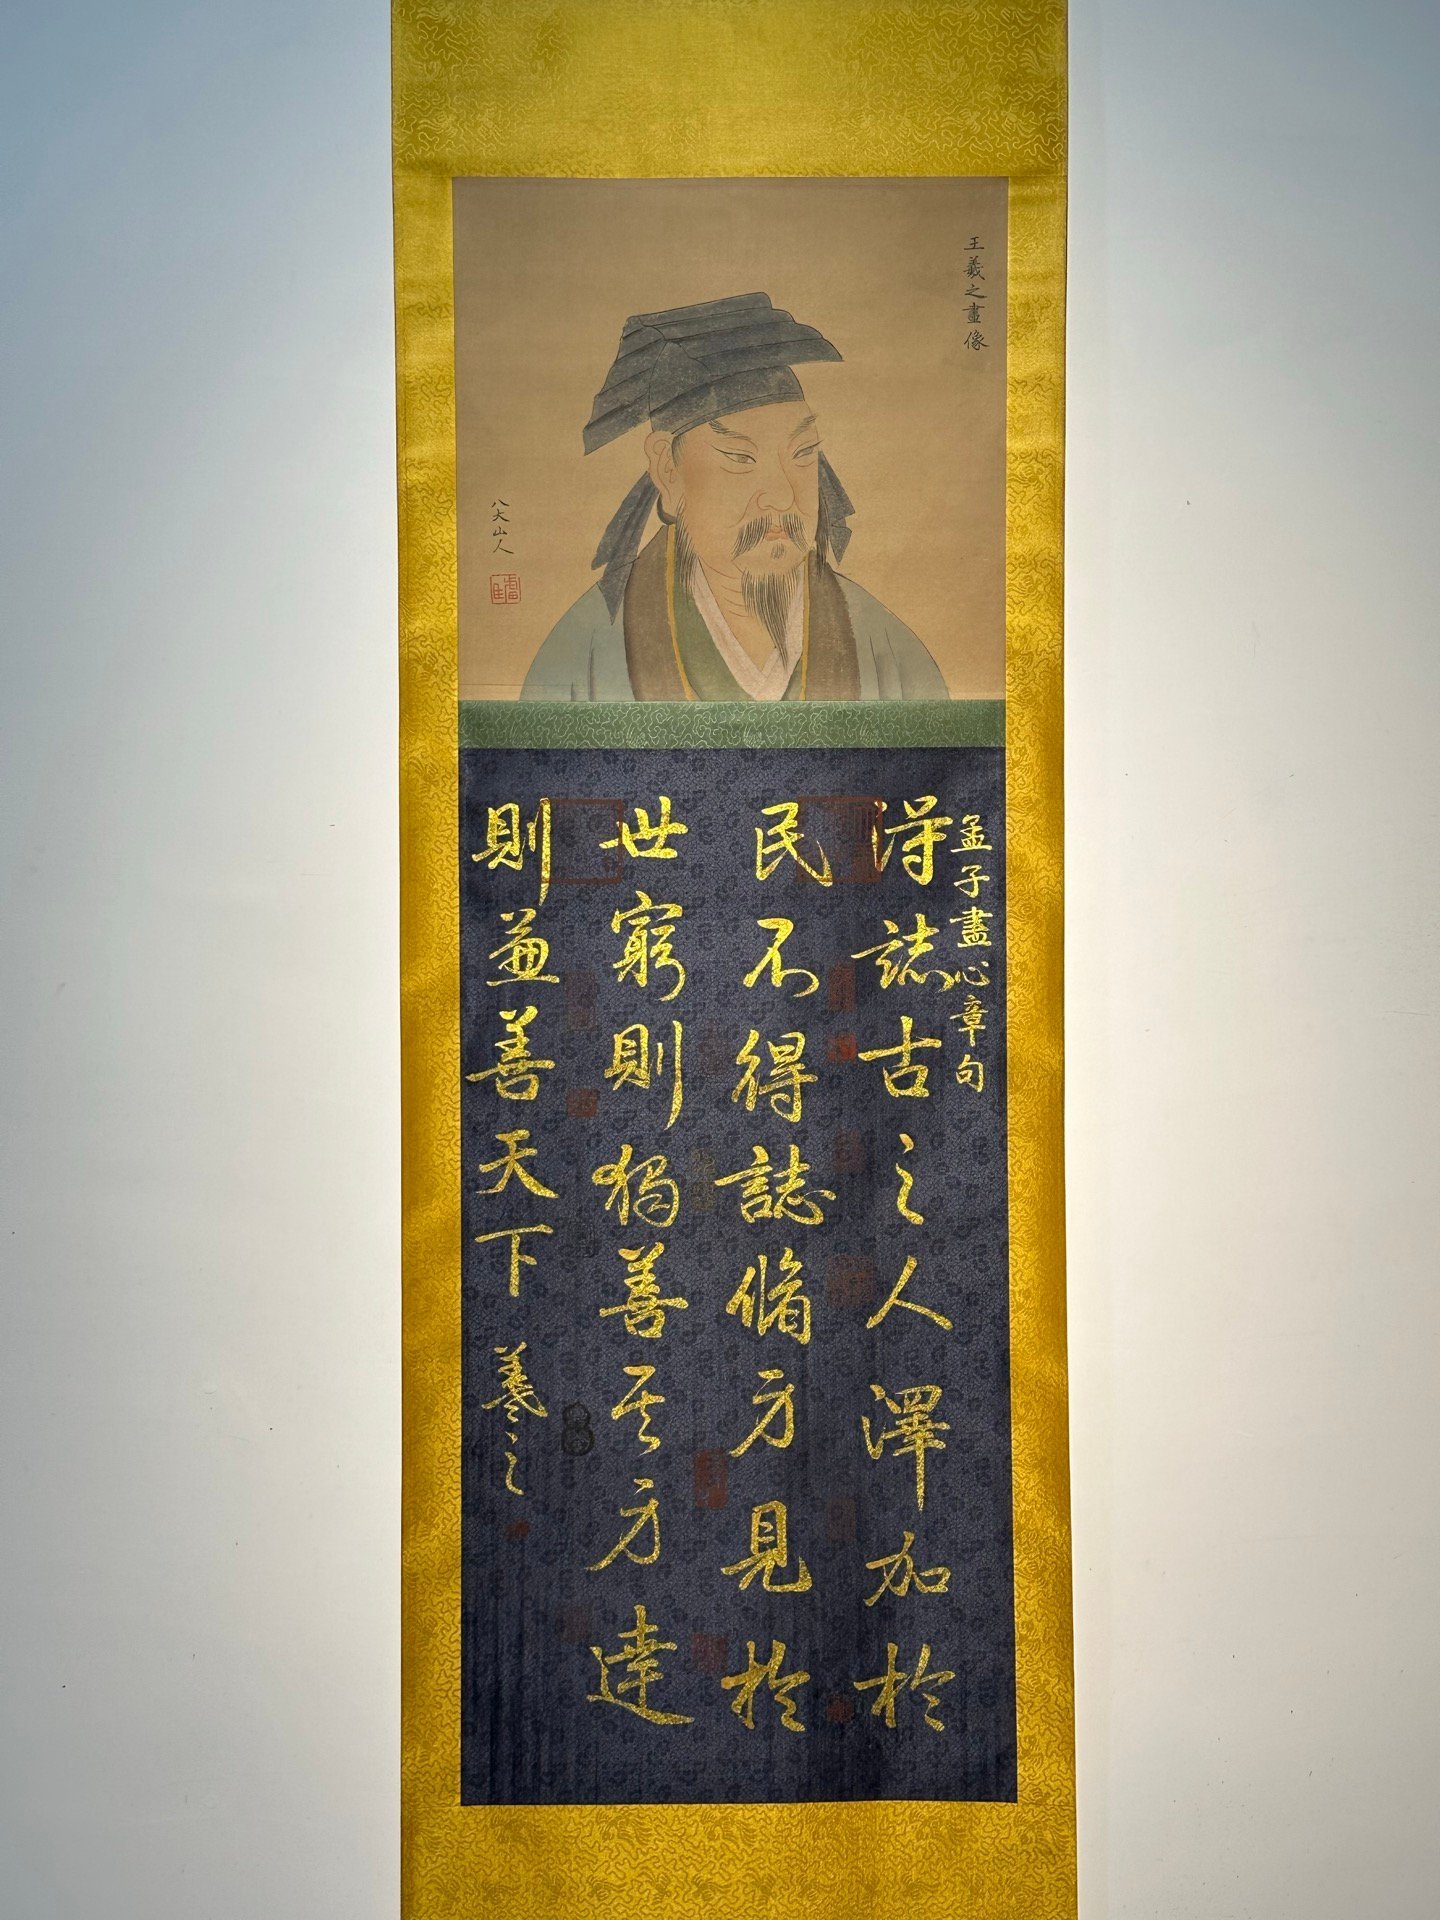 王羲之畫像
八大山人
孟子盡心章句
得誌古之人澤加於
民不得誌脩身見於
世窮則獨善其身達
則兼善天下
羲之